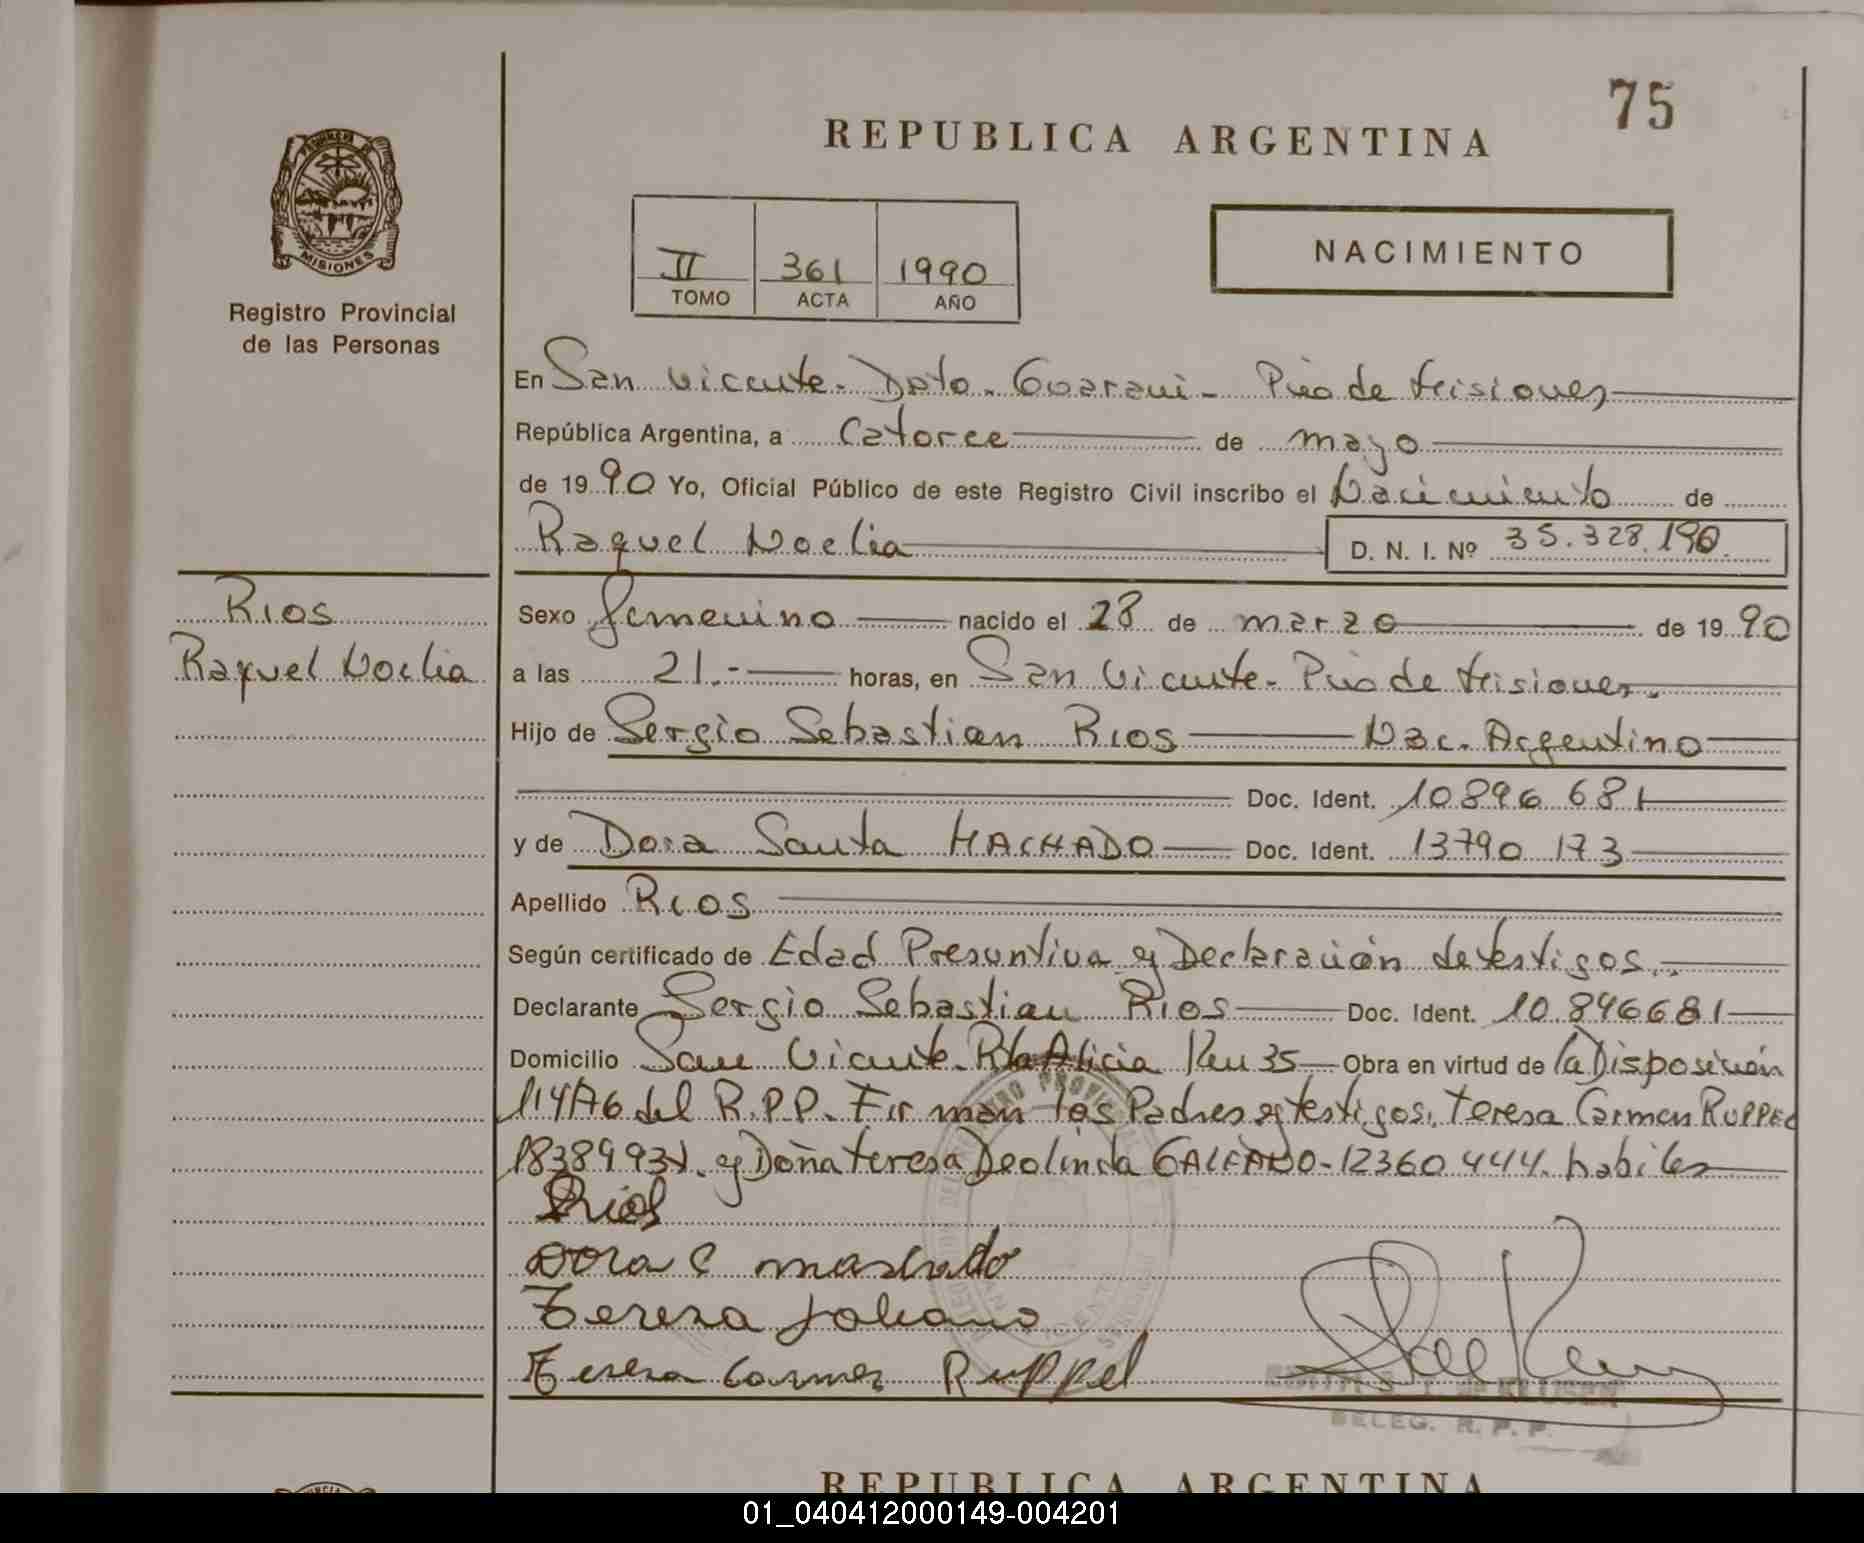 75
REPUBLICA ARGENTINA
MISIONES
Registro Provincial
de las Personas
II 361 1990
TOMO ACTA AÑO
NACIMIENTO
En San Vicente - Dpto. Guaraní - Pcia de Misiones
República Argentina, a Catorce de mayo
de 1990 Yo, Oficial Público de este Registro Civil inscribo el Nacimiento de
Raquel Noelia D. N. I. Nº 35.328.190
Rios
Raquel Noelia
Sexo femenino nacido el 28 de marzo de 1990
a las 21.- horas, en San Vicente - Pcia de Misiones.
Hijo de Sergio Sebastian Rios Nac. Argentino
Doc. Ident. 10896 681
y de Dora Santa MACHADO Doc. Ident. 13790 173
Apellido Rios
Según certificado de Edad Presuntiva y Declaración de testigos.
Declarante Sergio Sebastian Rios Doc. Ident. 10.896681
Domicilio San Vicente - Alicia Km 35 Obra en virtud de la Disposición
114/76 del R.P.P. Firman los Padres y testigos. Teresa Carmen RUPPEL
y Doña Teresa Deolinda 12360 444. habiles
Rios
Dora S machado
Teresa
Teresa Carmen Ruppel
DELEG. R. P. P.
REPUBLICA ARGENTINA
01_040412000149-004201